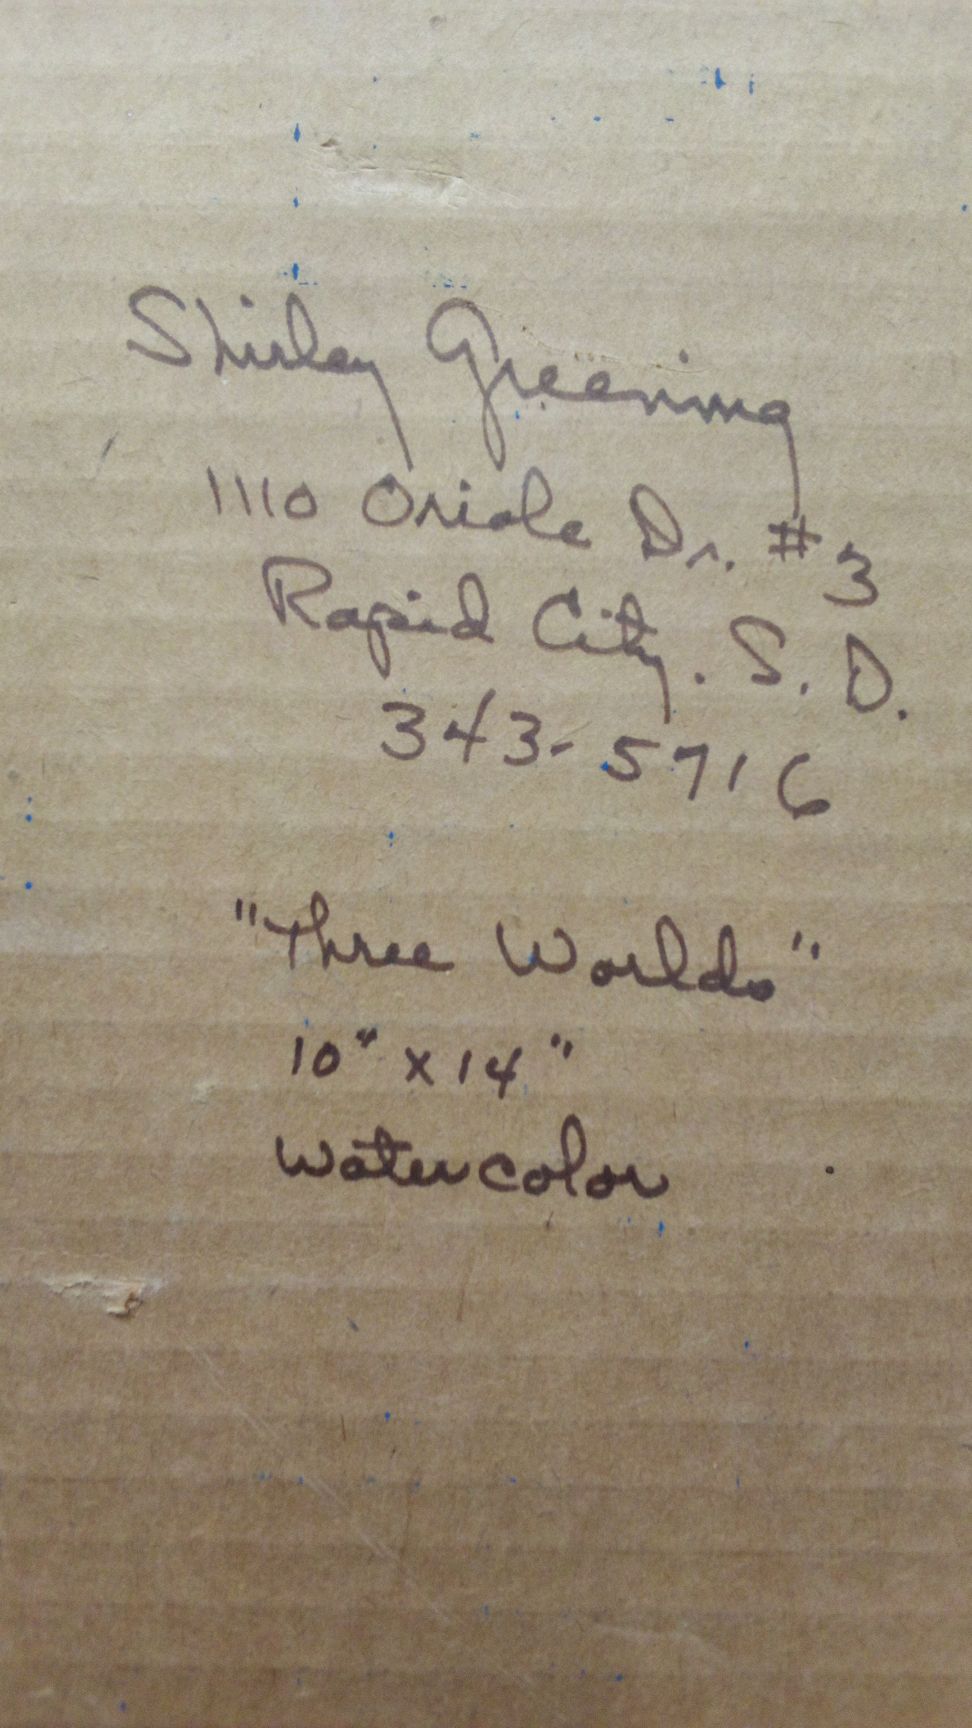 Shirley Greening
1110 Oriole Dr. #3
Rapid City. S. D.
343-5716
"Three Worlds"
10" x 14"
watercolor